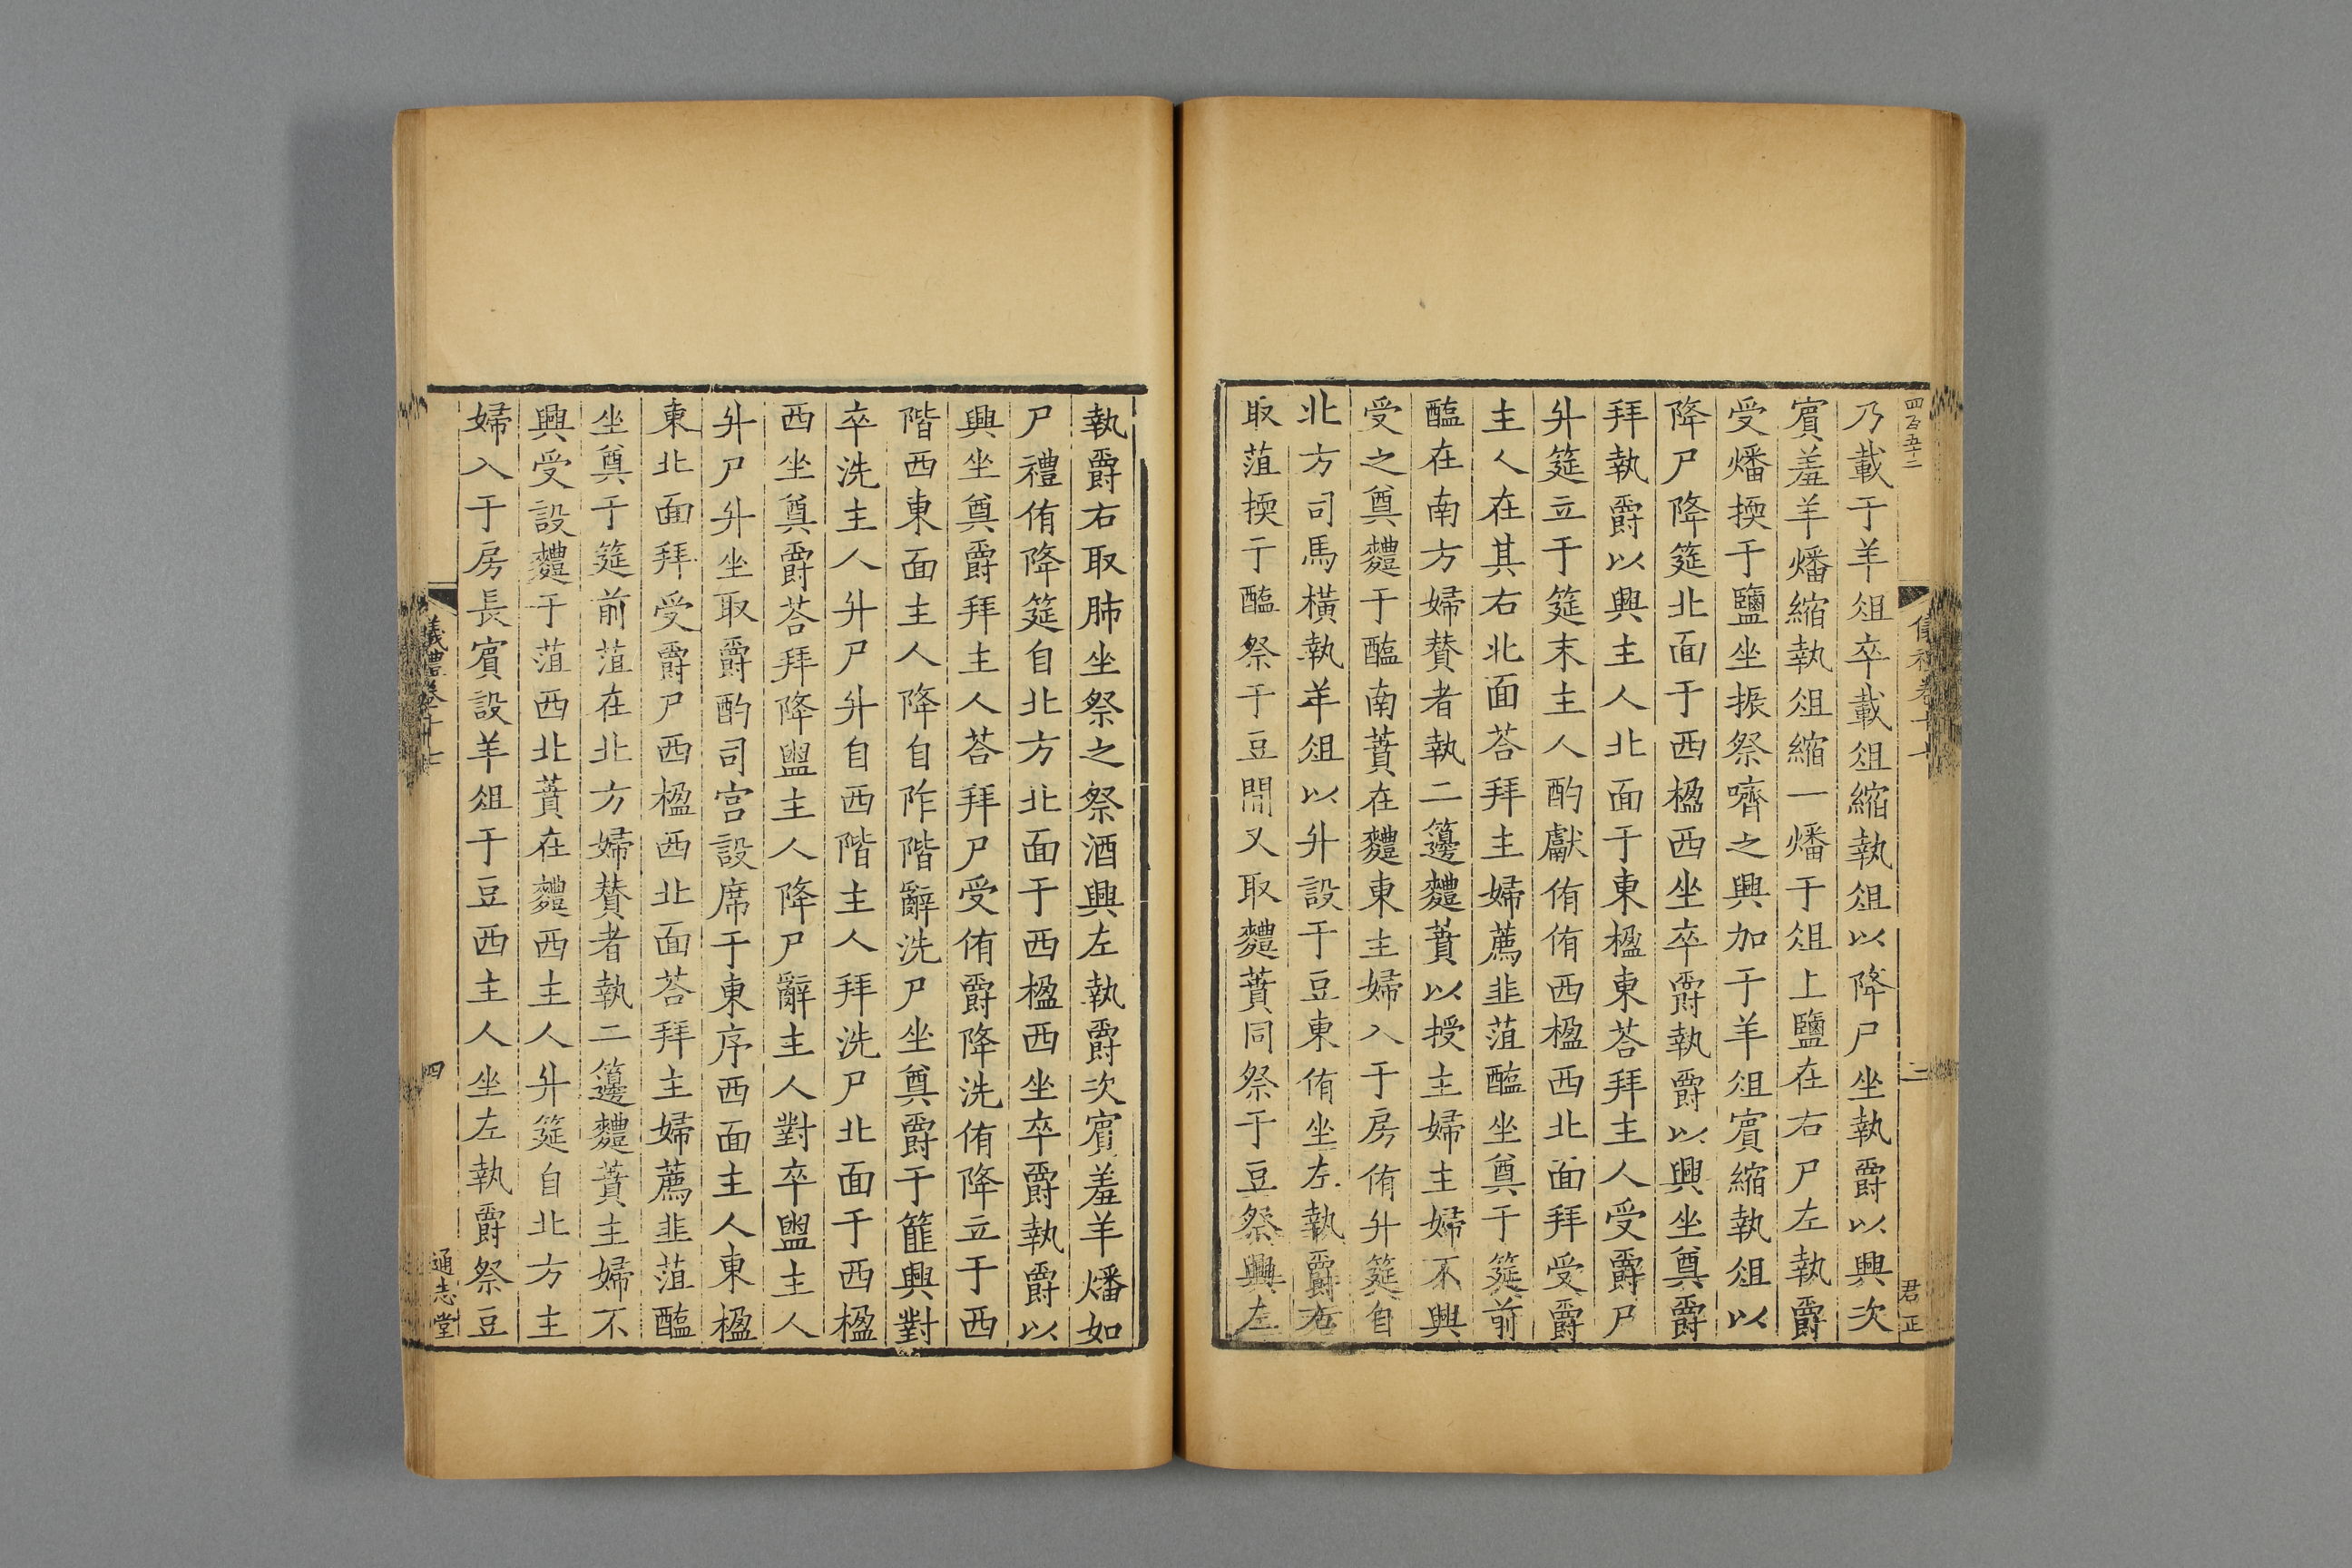 四百五十二
乃載于羊俎卒載俎縮執俎以降尸坐執爵以興次
賔羞羊燔縮執俎縮一燔于俎上鹽在右尸左執爵
受燔擩于鹽坐振祭嚌之興加于羊俎賔縮執俎以
降尸降筵北面于西楹西坐卒爵執爵以興坐奠爵
拜執爵以興主人北面于東楹東荅拜主人受爵尸
升筵立于筵末主人酌獻侑侑西楹西北面拜受爵
主人在其右北面荅拜主婦薦韭菹醢坐奠于筵前
醢在南方婦賛者執二籩麷蕡以授主婦主婦不興
受之奠麷于醢南蕡在麷東主婦入于房侑升筵自
北方司馬橫執羊俎以升設于豆東侑坐左執爵右
取菹擩于醢祭于豆閒又取麷蕡同祭于豆祭興左
三
君正
執爵右取肺坐祭之祭酒興左執爵次賔羞羊燔如
尸禮侑降筵自北方北面于西楹西坐卒爵執爵以
興坐奠爵拜主人荅拜尸受侑爵降洗侑降立于西
階西東面主人降自阼階辭洗尸坐奠爵于篚興對
卒洗主人升尸升自西階主人拜洗尸北面于西楹
西坐奠爵荅拜降盥主人降尸辭主人對卒盥主人
升尸升坐取爵酌司宮設席于東序西面主人東楹
東北面拜受爵尸西楹西北面荅拜主婦薦韭菹醢
坐奠于筵前菹在北方婦賛者執二籩麷蕡主婦不
興受設麷于菹西北蕡在麷西主人升筵自北方主
婦入于房長賔設羊俎于豆西主人坐左執爵祭豆
儀禮卷十七
四
通志堂